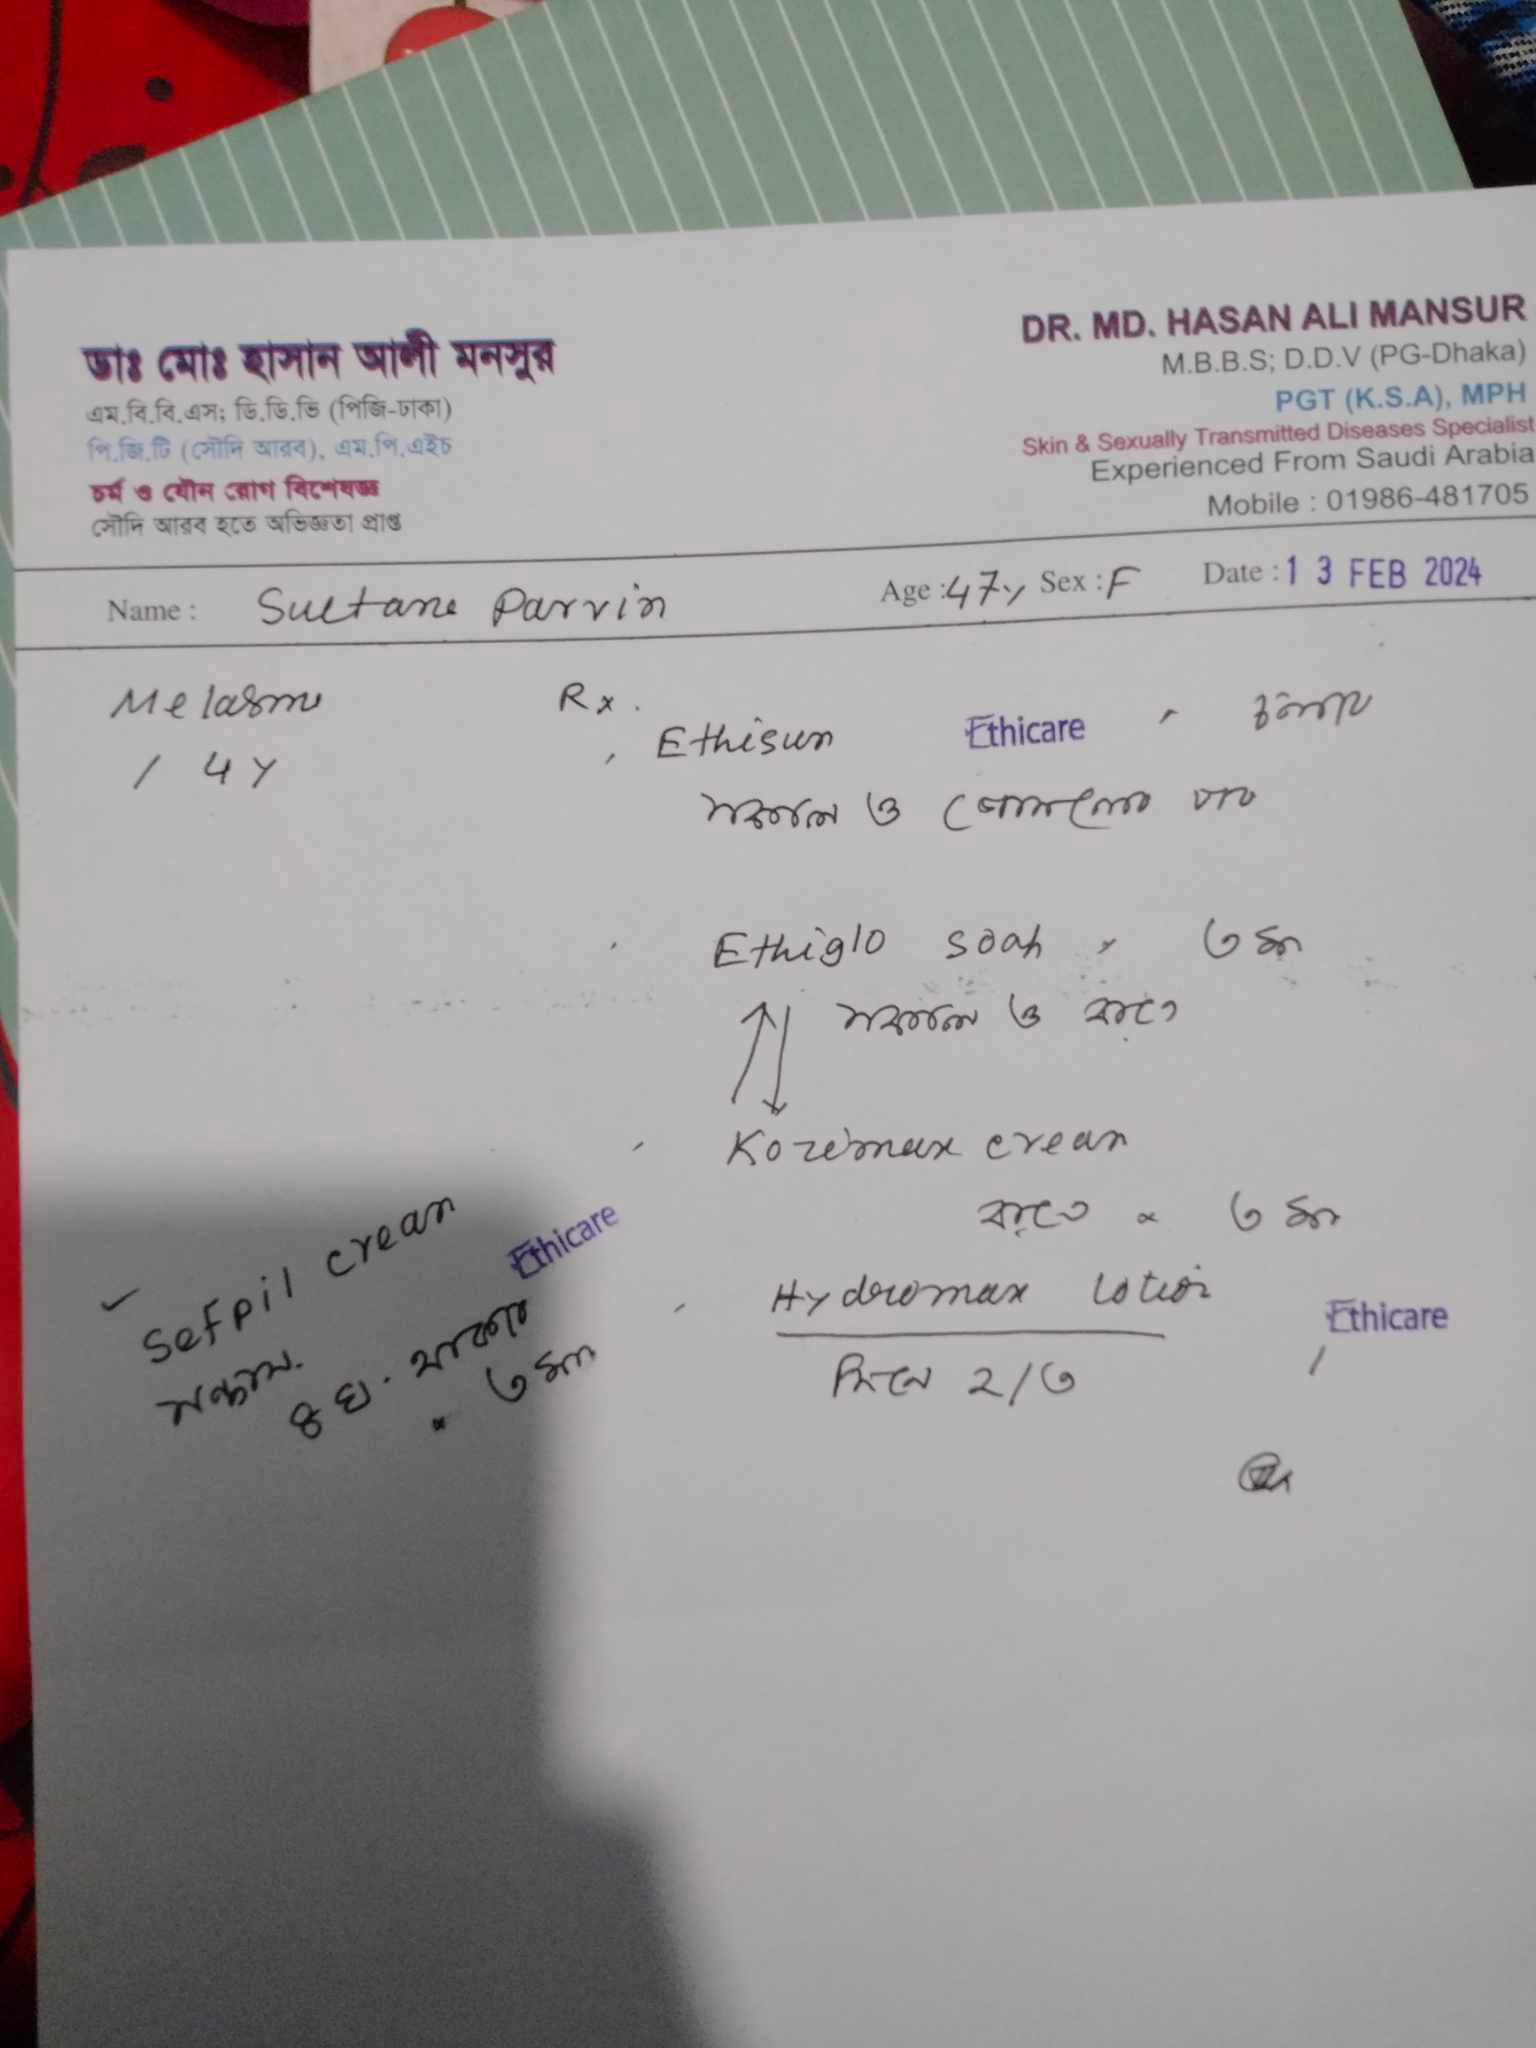 ডাঃ মোঃ হাসান আলী মনসুর
এম.বি.বি.এস; ডি.ডি.ভি (পিজি-ঢাকা)
পি.জি.টি (সৌদি আরব), এম.পি.এইচ
চর্ম ও যৌন রোগ বিশেষজ্ঞ
সৌদি আরব হতে অভিজ্ঞতা প্রাপ্ত
DR. MD. HASAN ALI MANSUR
M.B.B.S; D.D.V (PG-Dhaka)
PGT (K.S.A), MPH
Skin & Sexually Transmitted Diseases Specialist
Experienced From Saudi Arabia
Mobile : 01986-481705
Name : Sultana Parvin Age : 47y Sex : F Date : 13 FEB 2024
Melasma
/ 4y
Rx.
Ethisun Ethicare
সকাল ও
Ethiglo soap ৩ মাস
সকাল ও রাতে
Kozimax cream
রাতে × ৩ মাস
Hydromax Lotion Ethicare
দিনে ২/৩
Sefpil cream
Ethicare
সন্ধ্যায়
৪ ঘ. থাকবে
× ৩ মাস